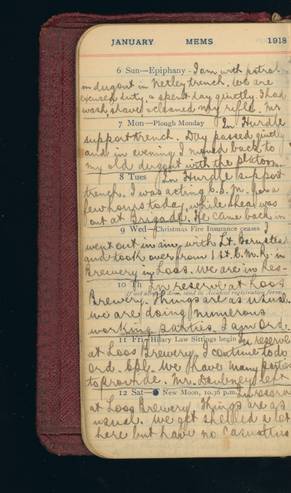 JANUARY MEMS 1918
6 Sun—Epiphany - I am with patrol
in dugout in Netley trench. We are
excused duty, & spent day quietly. I had
wash, shave & cleaned my rifle.
7 Mon—Plough Monday In Hurdle
support trench. Day passed quietly
and in evening I moved back to
my old dugout with the platoon.
8 Tues In Hurdle support
trench. I was acting C.S.M. for a
few hours today, while he was
out at Brigade. He came back in
9 Wed—Christmas Fire Insurance ceases I
went out in aim, with Lt.
and took over from 1st K.R.R. in
Brewery in Loos. We are in Res-
10 Th In reserve at Loos
Brewery. Things are as usual.
We are doing numerous
working parties. I am Ord.
11 Fri—Hilary Law Sittings begin In reserve
at Loos Brewery. I continue to do
Ord. We have many parties
to provide. Mr. Daubney left
12 Sat—● New Moon, 10.36 p.m. In reserve
at Loos Brewery. Things are as
usual. We get shelled a lot
here but have no casualties